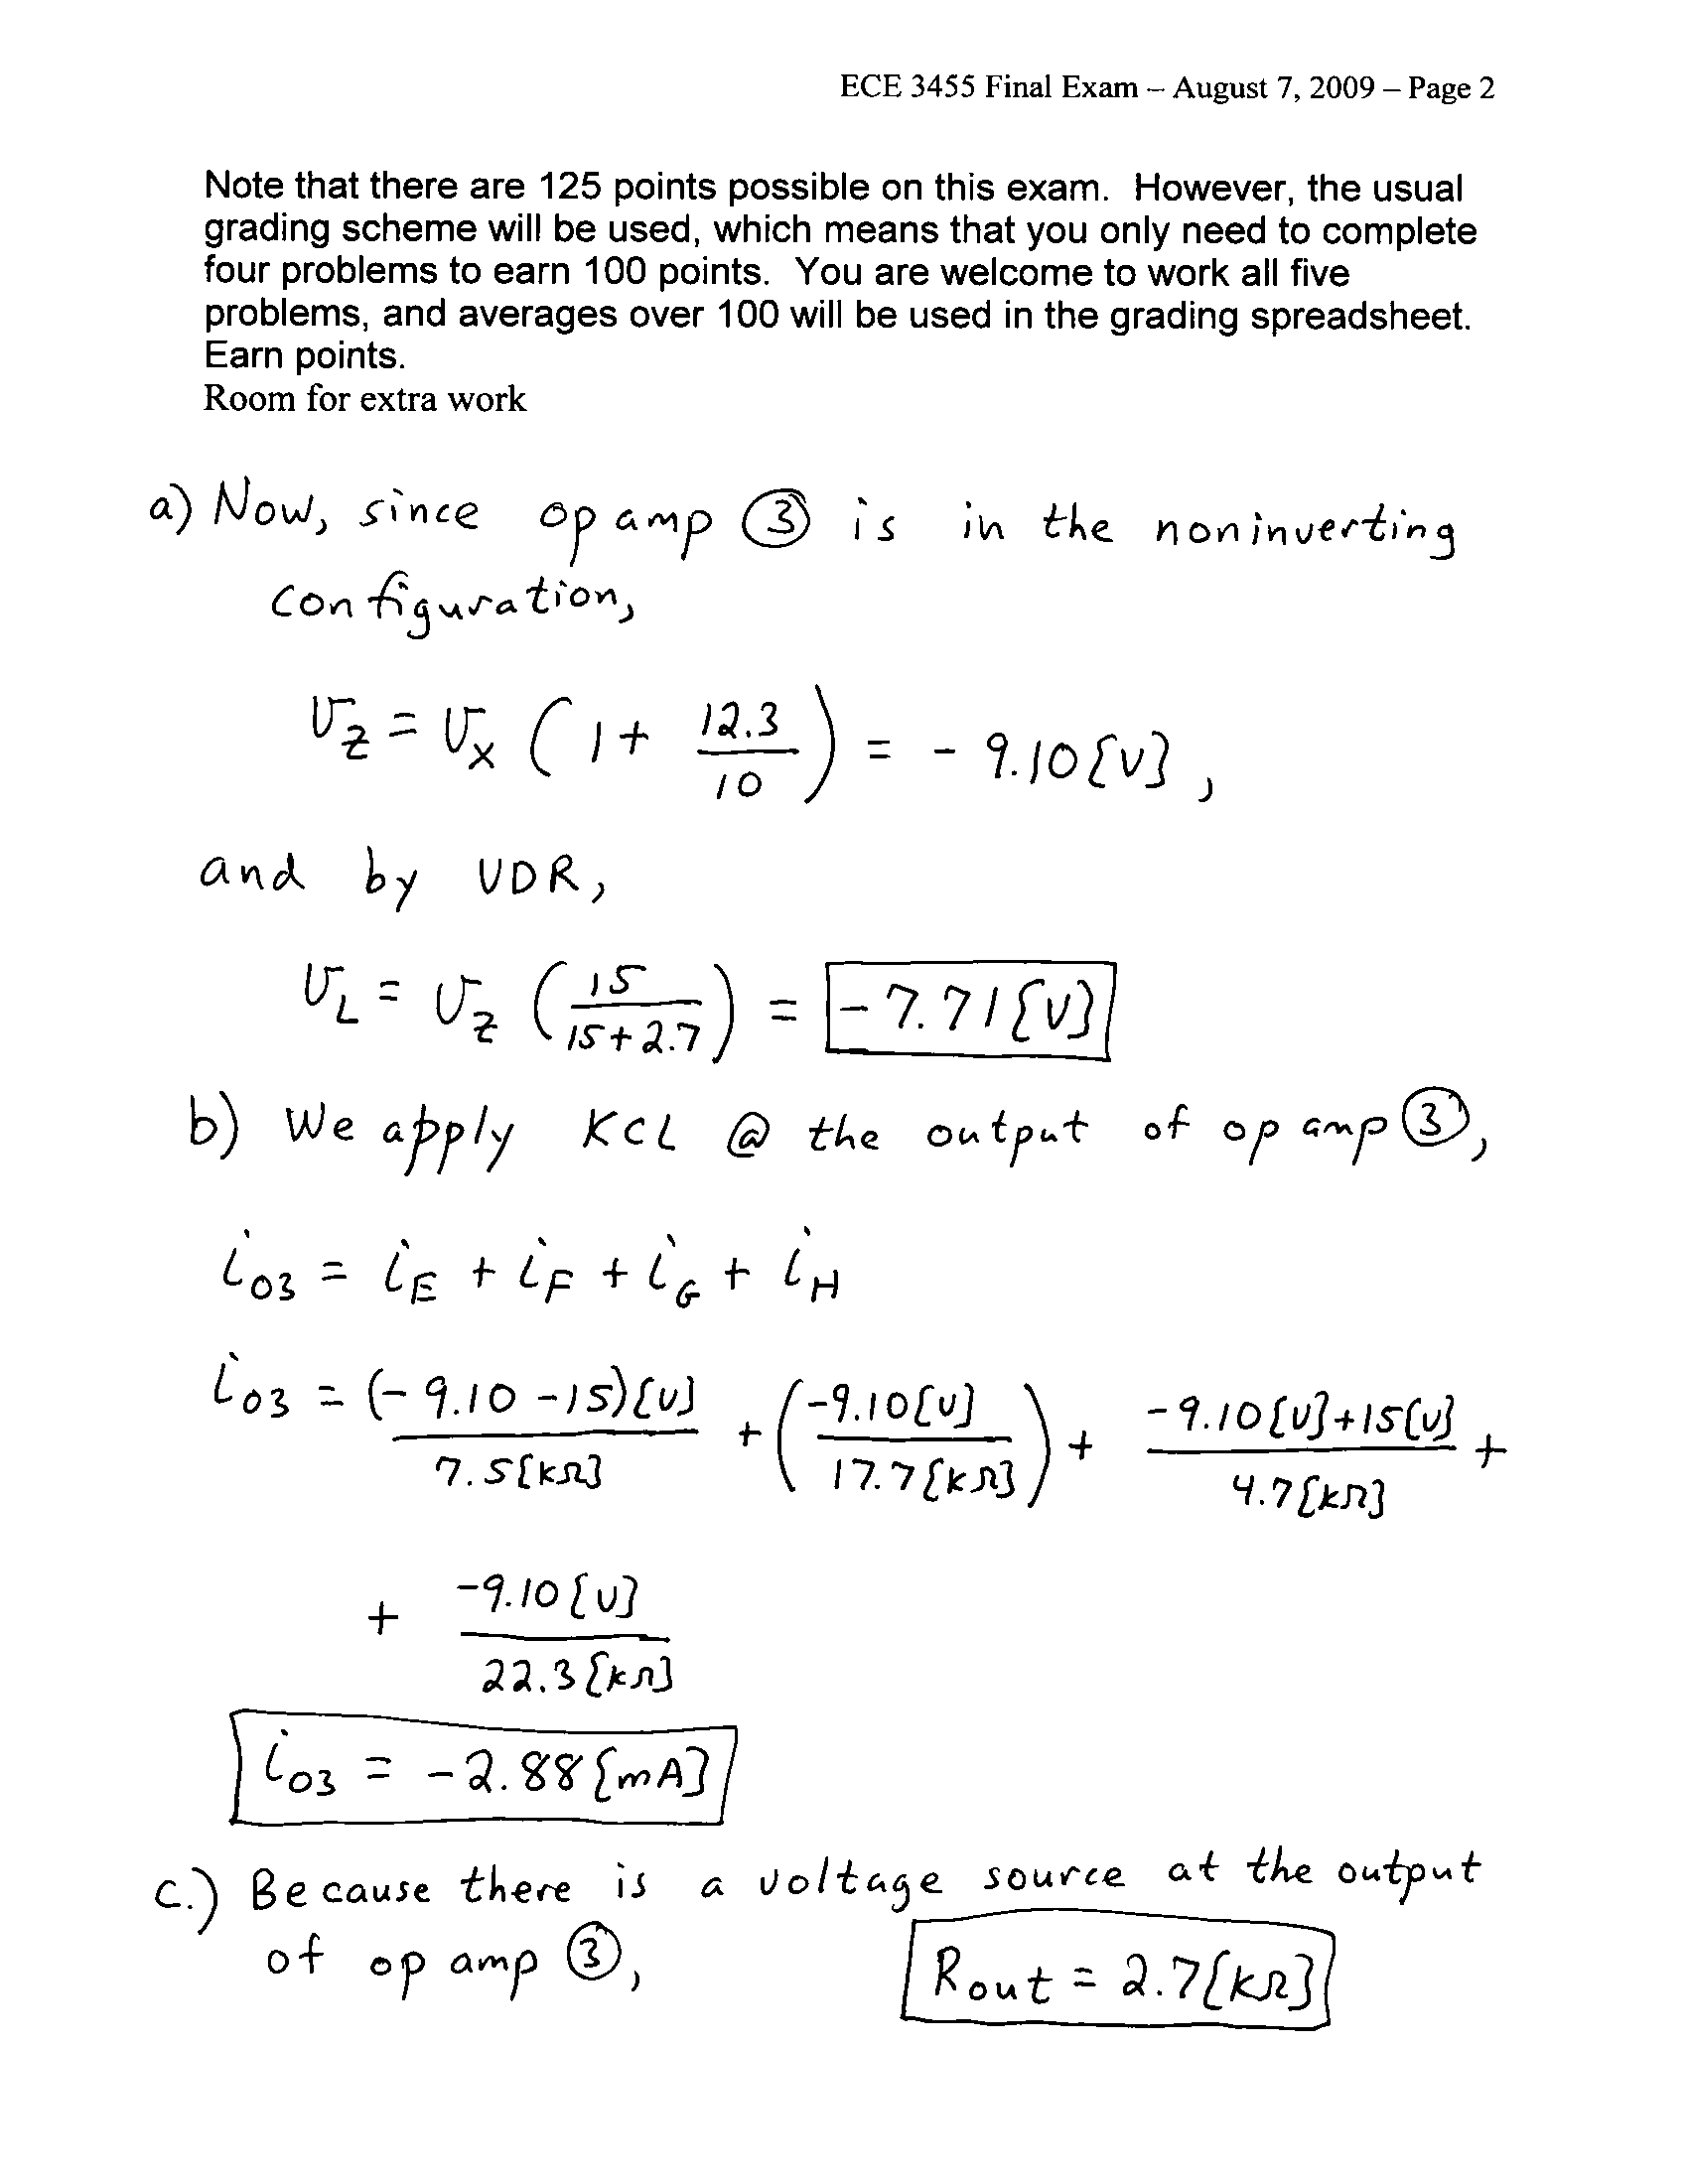 ECE 3455 Final Exam – August 7, 2009 – Page 2
Note that there are 125 points possible on this exam.  However, the usual
grading scheme will be used, which means that you only need to complete
four problems to earn 100 points.  You are welcome to work all five
problems, and averages over 100 will be used in the grading spreadsheet.
Earn points.
Room for extra work
a) Now, since op amp ③ is in the noninverting
configuration,
v_Z = v_X ( 1 + 12.3/10 ) = - 9.10 [V] ,
and by VDR,
v_L = v_Z ( 15/(15+2.7) ) = - 7.71 [V]
b) We apply KCL @ the output of op amp ③,
i_O3 = i_E + i_F + i_G + i_H
i_O3 = (- 9.10 - 15)[V] / 7.5[kΩ] + ( -9.10[V] / 17.7[kΩ] ) + (-9.10[V]+15[V]) / 4.7[kΩ] +
+ -9.10[V] / 22.3[kΩ]
i_O3 = -2.88 [mA]
c.) Because there is a voltage source at the output
of op amp ③, R_out = 2.7[kΩ]